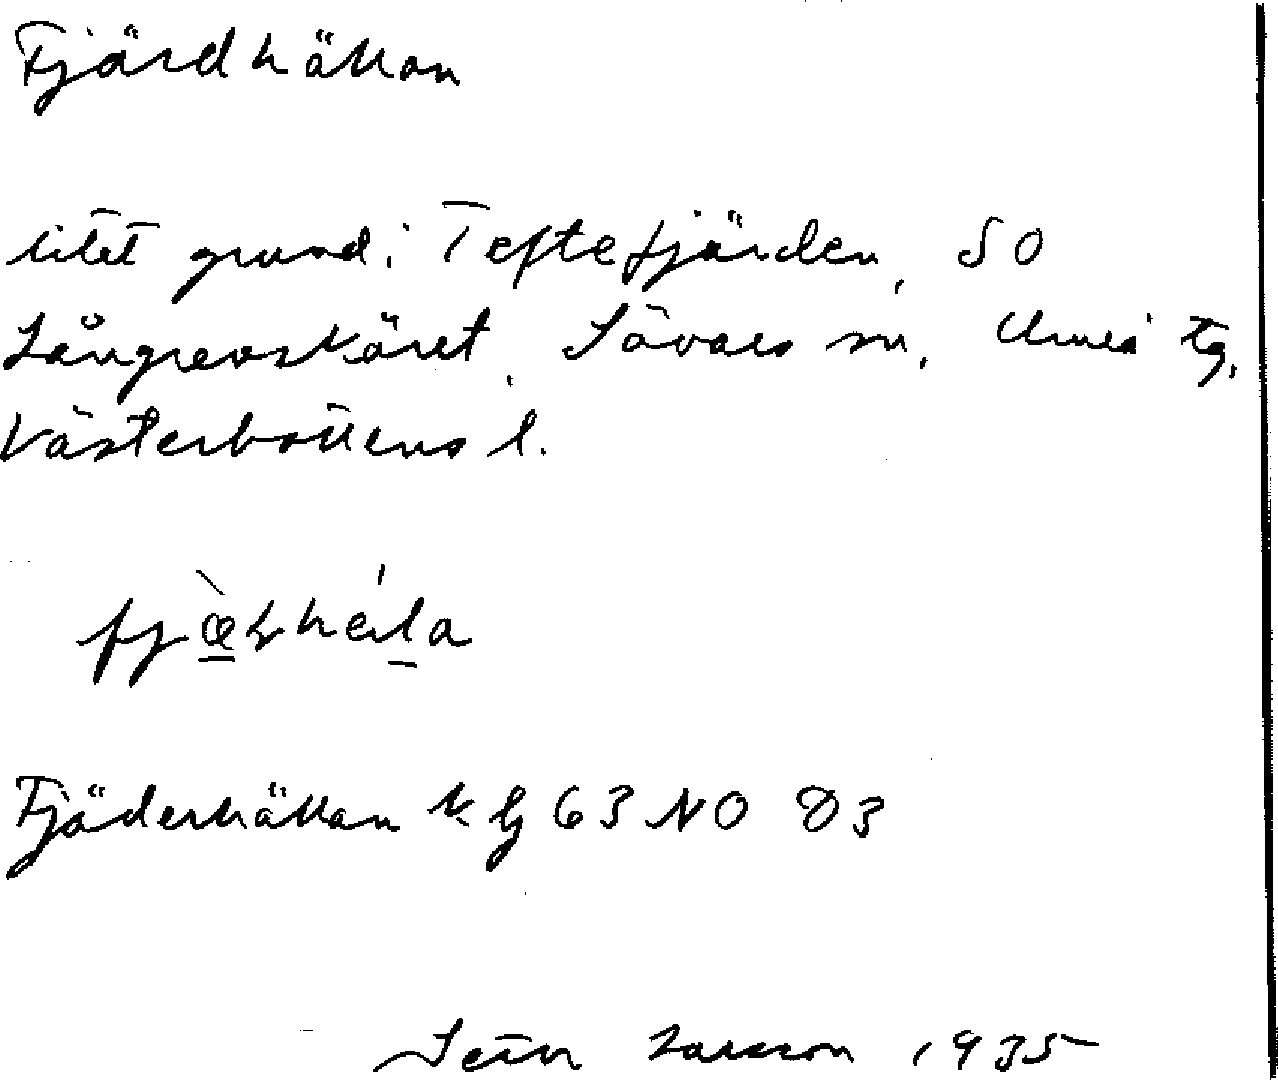 Fjärdhällan
litet grund i Teftefjärden, SO
Långrevskäret, Sävars sn, Umeå tg,
Västerbottens l.
Fjäderhällan kg 63 NO 03
Larsson 1935